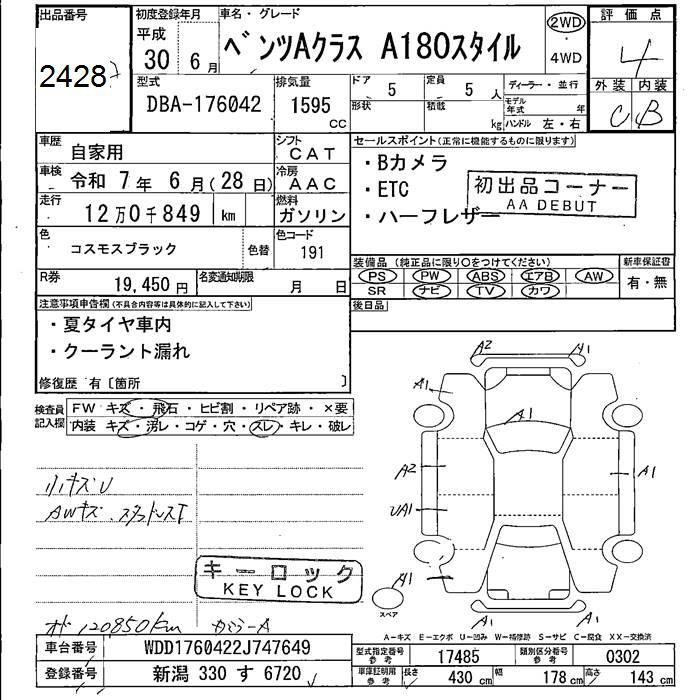 出品番号 初度登録年月 車名・グレード 評価点
2428 平成 30 6月 ベンツAクラス A180スタイル 2WD 4WD 4
型式 排気量 ドア 5 定員 5人 ディーラー・並行 外装 内装
DBA-176042 1595 CC 形状 積載 kg モデル年式 年 C B
ハンドル 左・右
車歴 自家用 シフト CAT セールスポイント(正常に機能するものに限ります)
車検 令和 7年 6月(28日) 冷房 AAC ・Bカメラ
走行 12万0千849 km 燃料 ガソリン ・ETC 初出品コーナー
・ハーフレザー AA DEBUT
色 コスモスブラック 色替 色コード 191
装備品(純正品に限り〇をつけてください) 新車保証書
R券 19,450円 名変通知期限 月 日 PS PW ABS エアB AW 有・無
SR ナビ TV カワ
注意事項申告欄(不具合内容等は具体的に記入して下さい) 後日品
・夏タイヤ車内
・クーラント漏れ
修復歴 有〔箇所 〕
検査員記入欄 FW キズ・飛石・ヒビ割・リペア跡・×要
内装 キズ・汚レ・コゲ・穴・スレ・キレ・破レ
A2 A1
A1 A1
A2 A1
UA1
小キズU
AWキズ
キーロック
KEY LOCK
A1
スペア
A1 A1
120850km
A-キズ E-エクボ U-凹み W-補修跡 S-サビ C-腐食 XX-交換済
車台番号 WDD1760422J747649 型式指定番号 参考 17485 類別区分番号 参考 0302
登録番号 新潟 330 す 6720 車庫証明用 参考 長さ 430 cm 幅 178 cm 高さ 143 cm